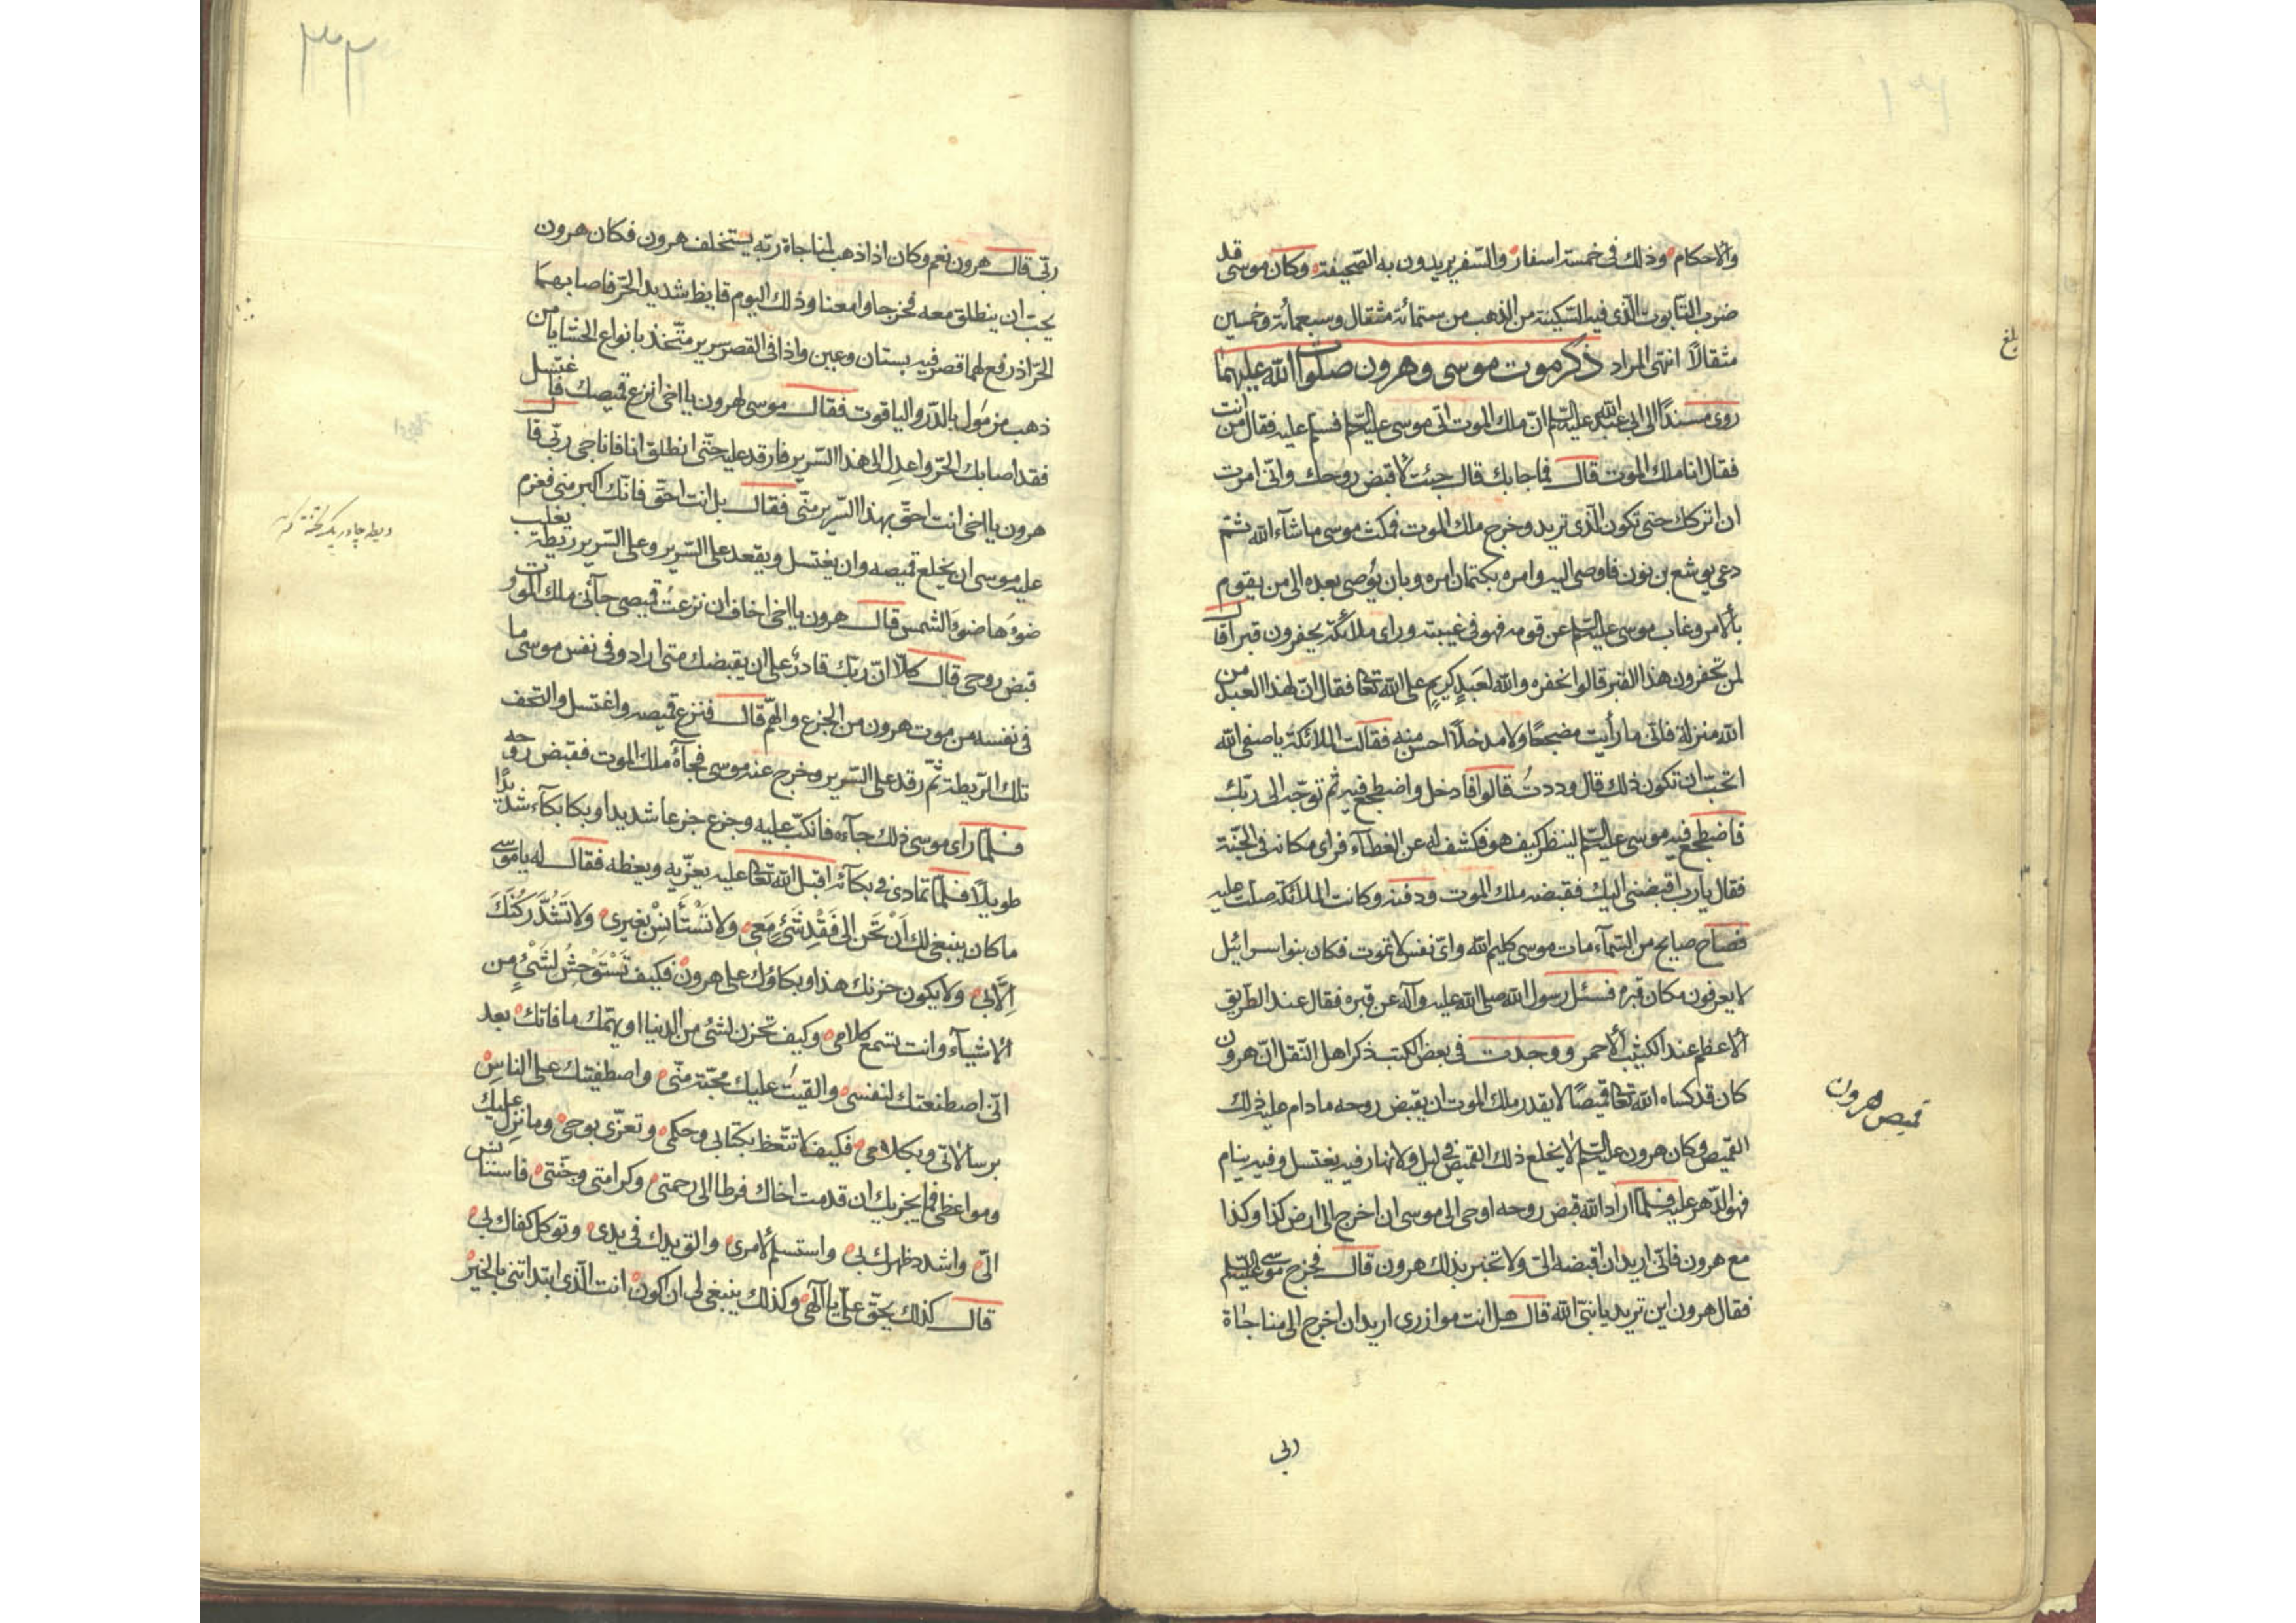 والاحكام وذلك فى خمسة اسفار والسّفر يريدون به الصّحيفة وكان موسى قد
ضرب التابوت الّذى فيه السّكينة من الذهب من ستمائة مثقال وسبعمائة وخمسين
مثقالاً انتهى المراد ذكر موت موسى وهرون صلوات الله عليهما
روى مسنداً الى ابى عبد الله عليه السّلم انّ ملك الموت اتى موسى عليه السّلم فسلم عليه فقال من انت
فقال انا ملك الموت قال فما جابك قال جئت لاقبض روحك وانّى امرت
ان اتركك حتى تكون الّذى تريد وخرج ملك الموت فمكث موسى ماشآء الله ثمّ
دعى يوشع بن نون فاوصى اليه وامره بكتمان امره وبان يوصى بعده الى من يقوم
بالامر وغاب موسى عليه السّلم عن قومه فهو فى غيبته وراى ملائكة يحفرون قبراً قال
لمن تحفرون هذا القبر قالوا نحفره والله لعبدٍ كريمٍ على الله تعالى فقال انّ لهذا العبد من
الله منزلة فانّى ما رأيت مضجعًا ولا مدخلاً احسن منه فقالت الملائكة يا صفى الله
اتحبّ ان تكون ذلك قال وددتُ قالوا فادخل واضطجع فيه ثم توجّه الى ربّك
فاضطجع فيه موسى عليه السّلم لينظر كيف هو فكشف له عن الغطآء فراى مكانه فى الجنّة
فقال يارب اقبضنى اليك فقبضه ملك الموت ودفنه وكانت الملائكة صلّت عليه
فصاح صايح من السّمآء مات موسى كليم الله واىّ نفس لا تموت فكان بنو اسرائيل
لا يعرفون مكان قبره فسئل رسول الله صلى الله عليه وآله عن قبره فقال عند الطريق
الاعظم عند الكثيب الاحمر ووجدت فى بعض الكتب ذكر اهل النّقل انّ هرون
كان قد كساه الله تعالى قميصًا لا يقدر ملك الموت ان يقبض روحه مادام عليه ذلك
القميص وكان هرون عليه السّلم لا يخلع ذلك القميص فى ليل ولا نهار فيه يغتسل وفيه ينام
فهو الدّهر عليه فلمّا اراد الله قبض روحه اوحى الى موسى ان اخرج الى ارض كذا وكذا
مع هرون فانّى اريد ان اقبضه الىّ ولا تخبر بذلك هرون قال فخرج موسى عليه السّلم
فقال هرون اين تريد يا نبىّ الله قال هل انت موازرى اريد ان اخرج الى مناجاة
ربى
قميص هرون
بلغ
ربّى قال هرون نعم وكان اذا ذهب لمناجاة ربّه يستخلف هرون فكان هرون
يحبّ ان ينطلق معه فخرجا وامعنا وذلك اليوم قايظ شديد الحرّ فاصابهما
الحرّ اذ رفع لهما قصر فيه بستان وعين واذا فى القصر سرير متّخذ بانواع الحشايا من
ذهب مزمول بالدّر والياقوت فقال موسى لهرون يا اخى انزع قميصك فاغتسل
فقد اصابك الحرّ واعدل الى هذا السّرير فارقد عليه حتّى انطلق انا فاناجى ربّى قال
هرون يا اخى انت احقّ بهذا السّرير منّى فقال بل انت احقّ فانّك اكبر منى فعزم
عليه موسى ان يخلع قميصه وان يغتسل ويقعد على السّرير وعلى السّرير ريطة يغلب
ضوءُها ضوءَ الشمس قال هرون يا اخى اخاف ان نزعت قميصى جآئنى ملك الموت
قبض روحى قال كلّا انّ ربّك قادرٌ على ان يقبضك متى اراد وفى نفس موسى ما
فى نفسه من موت هرون من الجزع والهّم قال فنزع قميصه واغتسل والتحف
تلك الرّيطة ثمّ رقد على السّرير وخرج عنه موسى فجآءه ملك الموت فقبض روحه
فلمّا راى موسى ذلك جآءه فانكبّ عليه وجزع جزعا شديدا وبكا بكآء شديدًا
طويلاً فلمّا تمادى فى بكآئه اقبل الله تعالى عليه يعزّيه ويعظه فقال له يا موسى
ما كان ينبغى لك اَنْ تَحِنّ الى فَقْدِ شَىْءٍ مَعِى ولا تَسْتَأنِسْ بغيرى ولا تَشُدَّ رُكْنَكَ
اِلاّ بى ولا يكون حزنك هذا وبكاؤك على هرون فكيف تَسْتَوْحِشُ لشَىْءٍ من
الاشيآء وانت تسمع كلامى وكيف تحزن لشئ من الدنيا او يهمّك ما فاتك بعد
انّى اصطنعتك لنفسى والقيت عليك محبّة منّى واصطفيتك على الناس
برسالاتى وبكلامى فكيف لا تتّعظ بكتابى وحكمى وتعزّى بوحى وما نزل عليك
ومواعظى فما يحزنك ان قدمت اخاك فرطا الى رحمتى وكرامتى وجنّتى فاستانس
الىّ واشدد ظهرك بى واستسلم لامرى والق يدك فى يدى وتوكل كفاك بى
قال كذلك يحقّ علىّ يا الهى وكذلك ينبغى لى ان اكون انت الّذى ابتداتنى بالخير